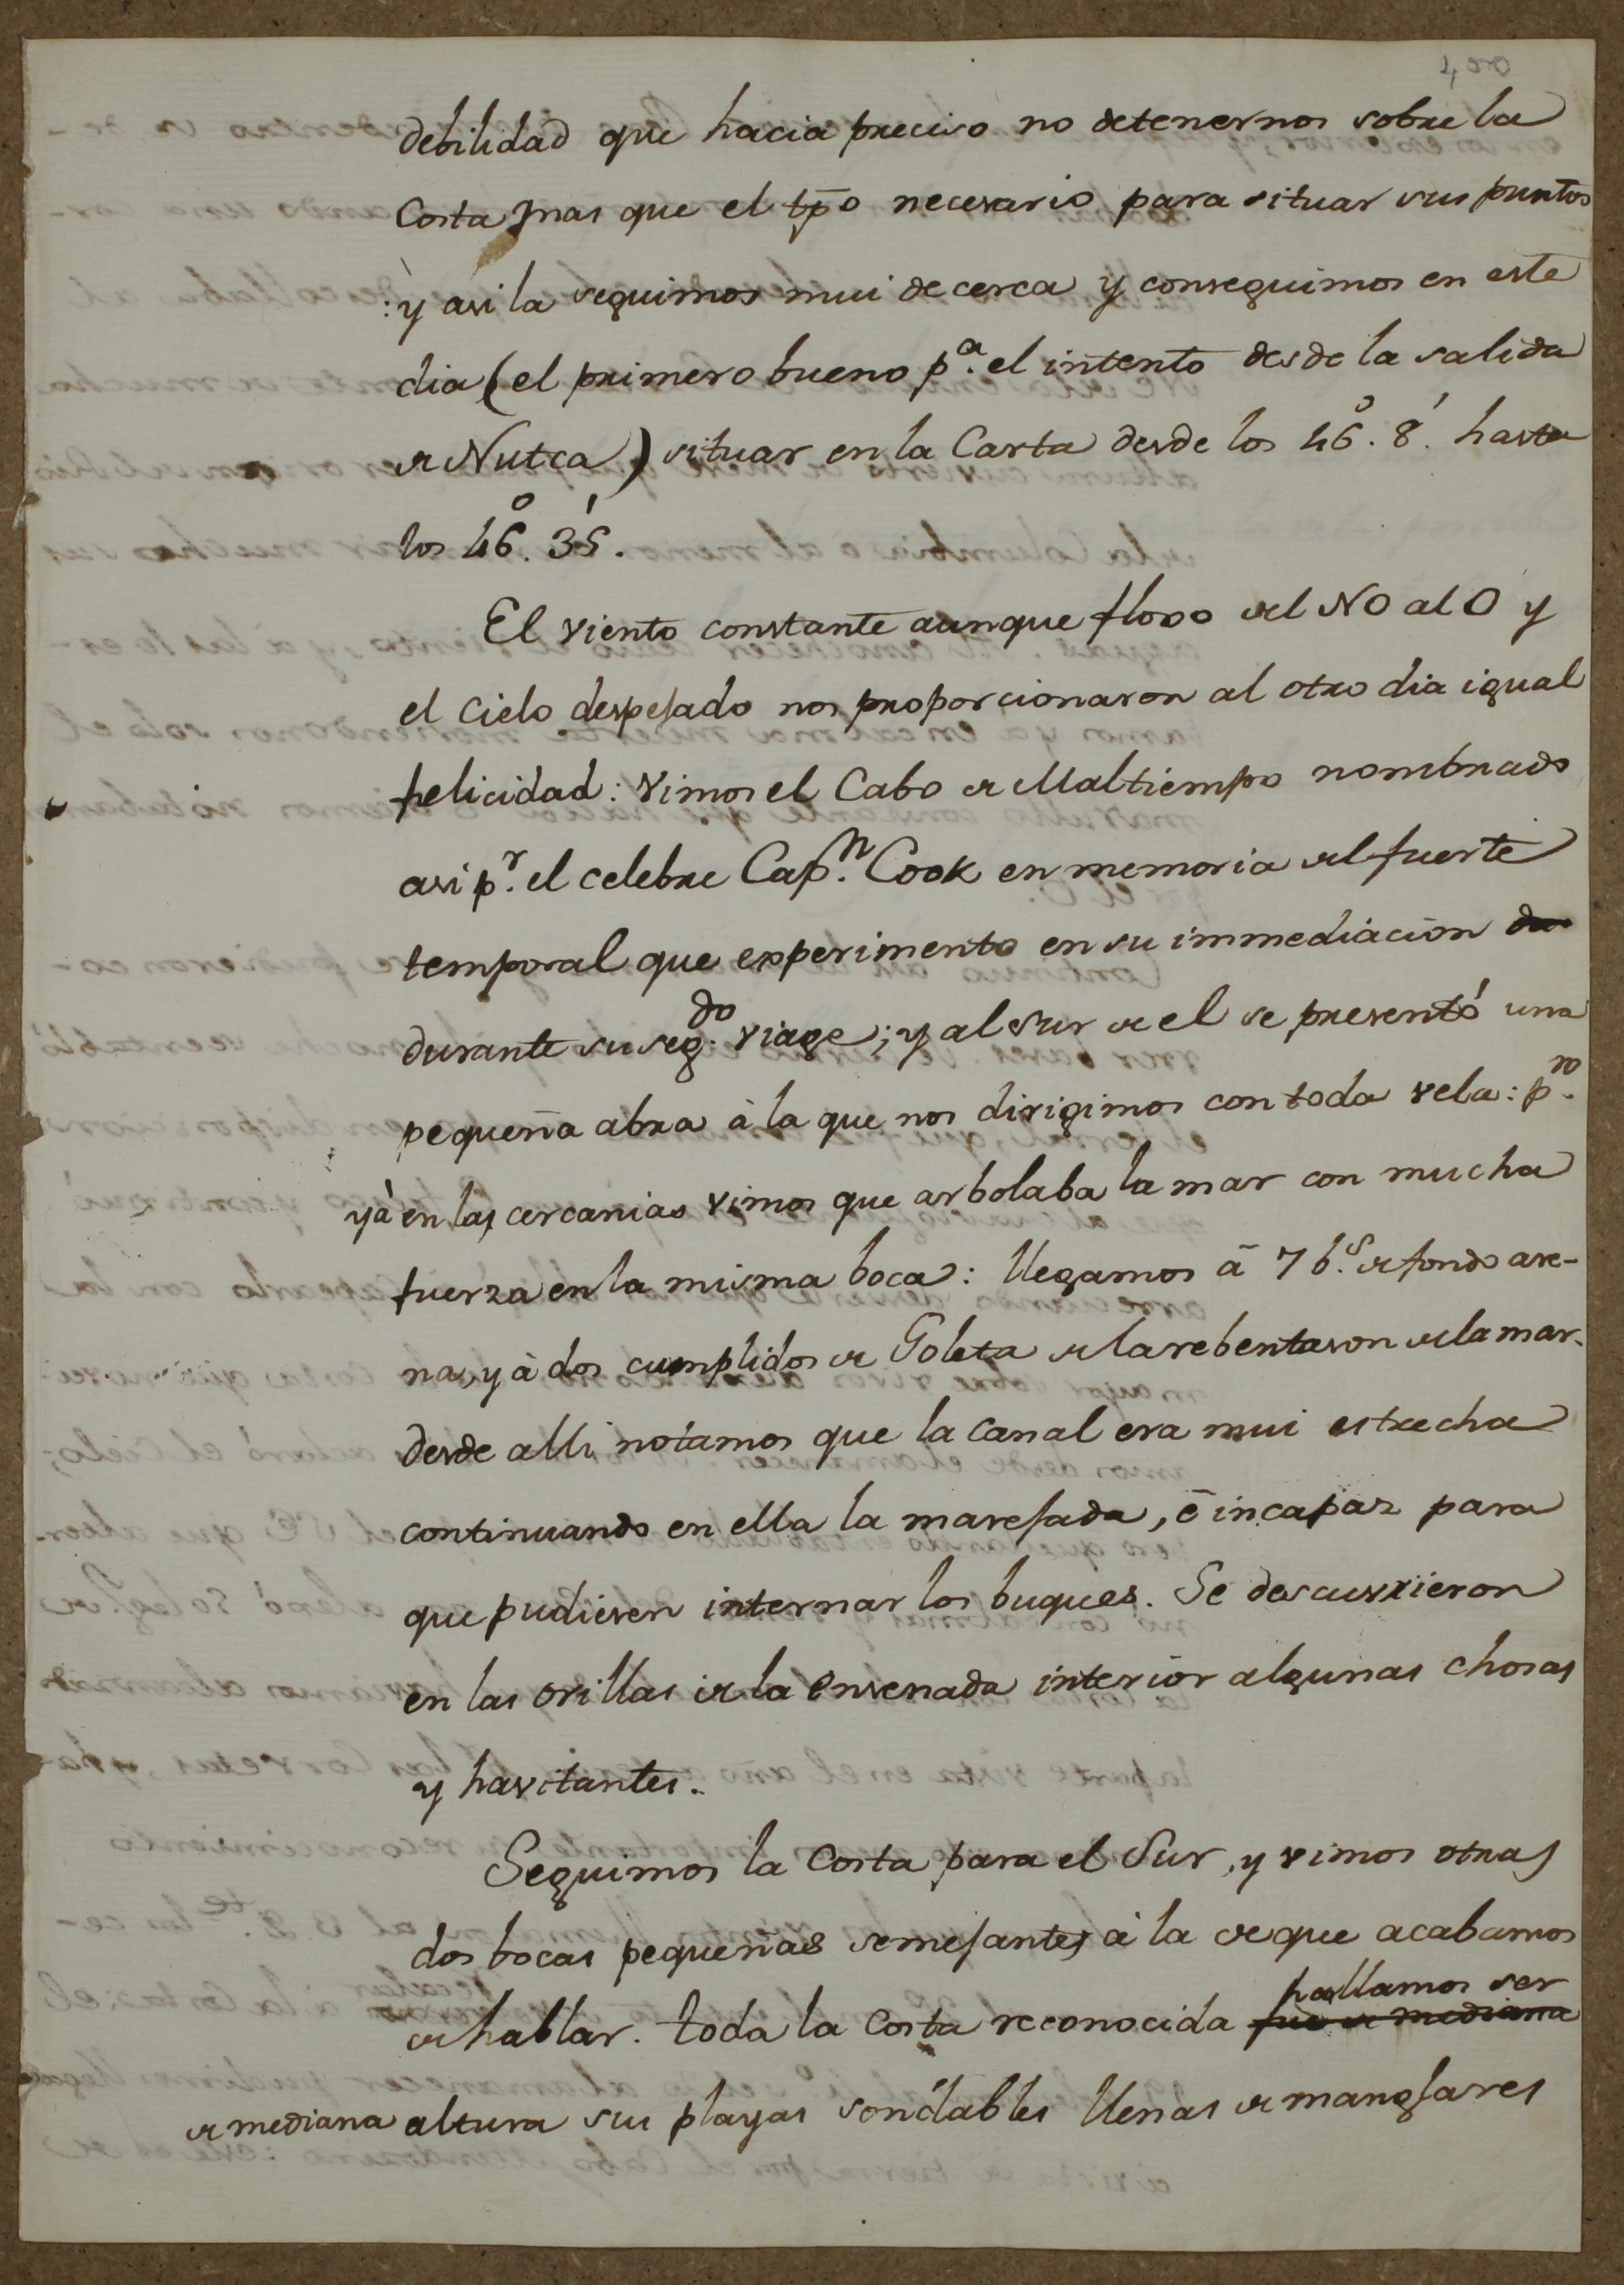 400
debilidad que hacia preciso no detenernos sobre la
Costa mas que el tp̄o necesario para situar sus puntos
: y asi la seguimos mui de cerca y conseguimos en este
dia (el primero bueno p.ª el intento desde la salida
de Nutca) situar en la Carta desde los 46°. 8'. hasta
los 46°. 35'.
El viento constante aunque floxo del NO al O y
el Cielo despejado nos proporcionaron al otro dia igual
felicidad: vimos el Cabo de Maltiempo nombrado
asi p.r el celebre Cap.n Cook en memoria del fuerte
temporal que experimento en su immediacion
durante su seg.do viage; y al sur de el se presentó una
pequeña abra à la que nos dirigimos con toda vela: p.ro
yà en las cercanias vimos que arbolaba la mar con mucha
fuerza en la misma boca: llegamos â 7 b.s de fondo are-
na, y à dos cumplidos de Goleta de la rebentason de la mar.
desde alli notamos que la canal era mui estrecha
continuando en ella la marejada, è incapaz para
que pudiesen internar los buques. Se descuvrieron
en las orillas de la ensenada interior algunas chosas
y havitantes.
Seguimos la Costa para el Sur, y vimos otras
dos bocas pequeñas semejantes à la de que acabamos
hallamos ser
de hablar. toda la Costa reconocida fue de mediana
de mediana altura sus playas sondables llenas de manglares